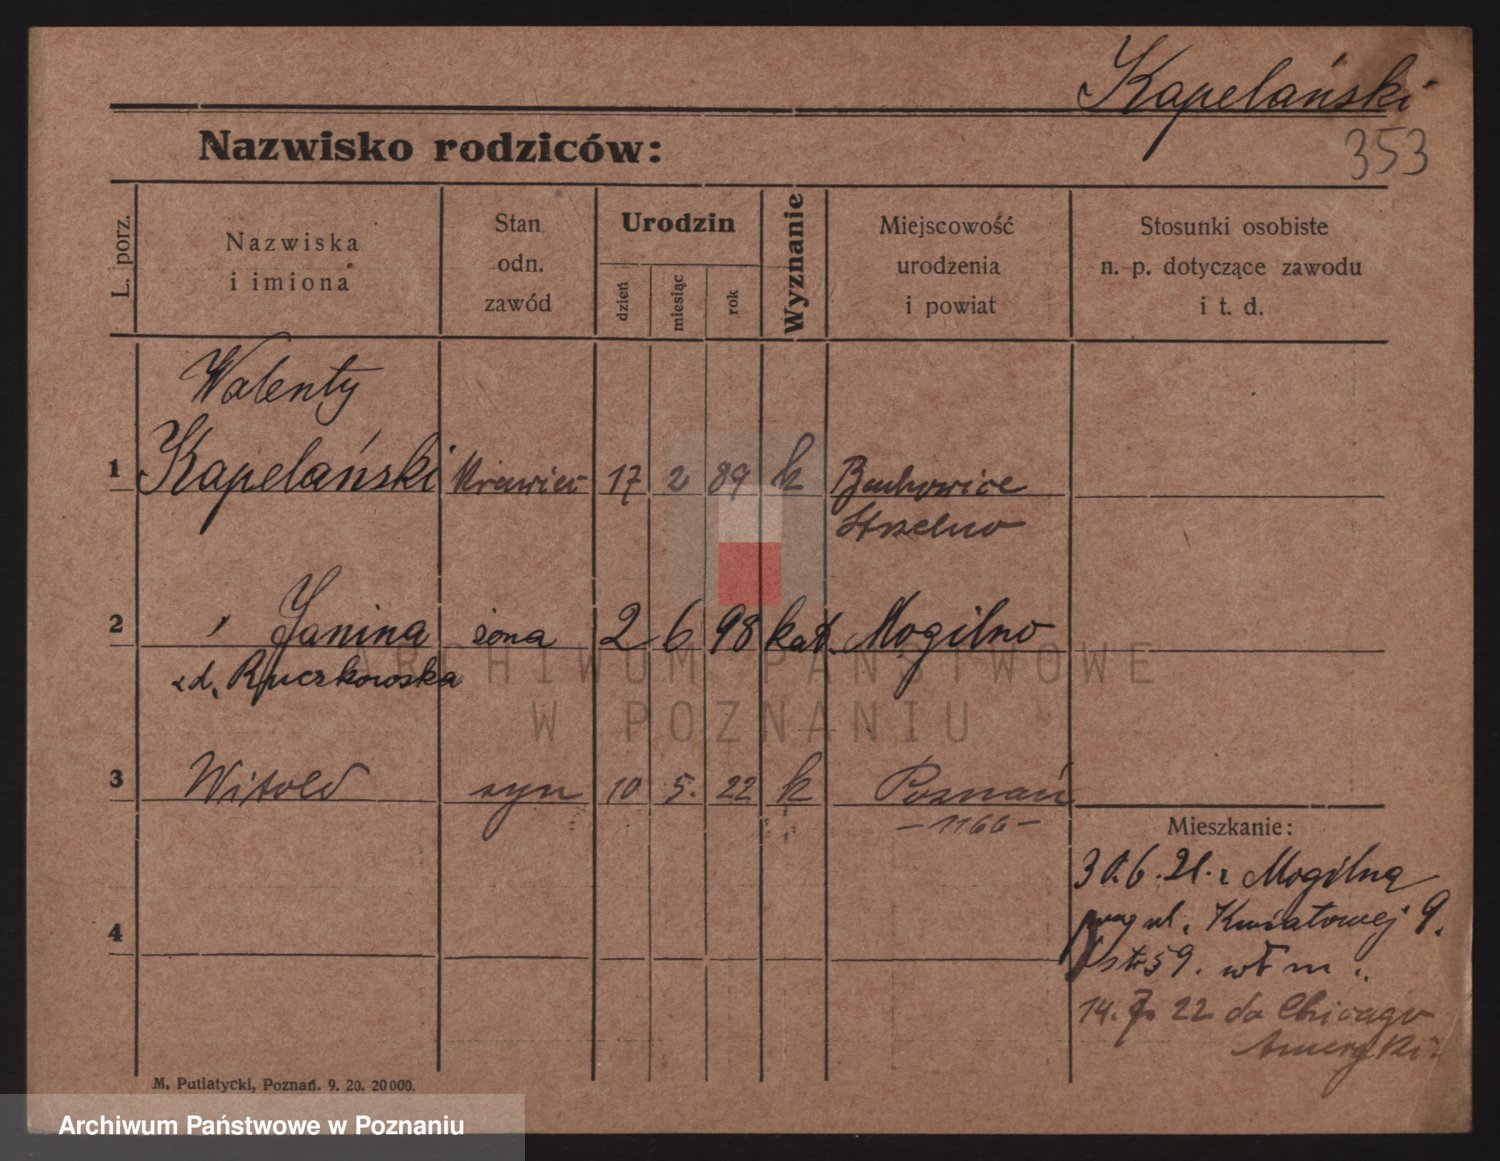 Kapelański
353
Nazwisko rodziców:
L. porz.
Nazwiska i imiona
Stan odn. zawód
Urodzin
dzień miesiąc rok
Wyznanie
Miejscowość urodzenia i powiat
Stosunki osobiste n. p. dotyczące zawodu i t. d.
Walenty
1 Kapelański krawiec 17 2 89 k
Strzelno
2 Janina żona 2 6 98 kat. Mogilno
Ruczkowska
3 Witold syn 10 5. 22 k Poznań
— 1166 —
Mieszkanie:
30.6.21. z Mogilna
ul. Kwiatowej 9.
4
14. 7. 22 do Chicago
Ameryki
M. Putiatycki, Poznań. 9. 20. 20000.
ARCHIWUM PAŃSTWOWE
W POZNANIU
Archiwum Państwowe w Poznaniu